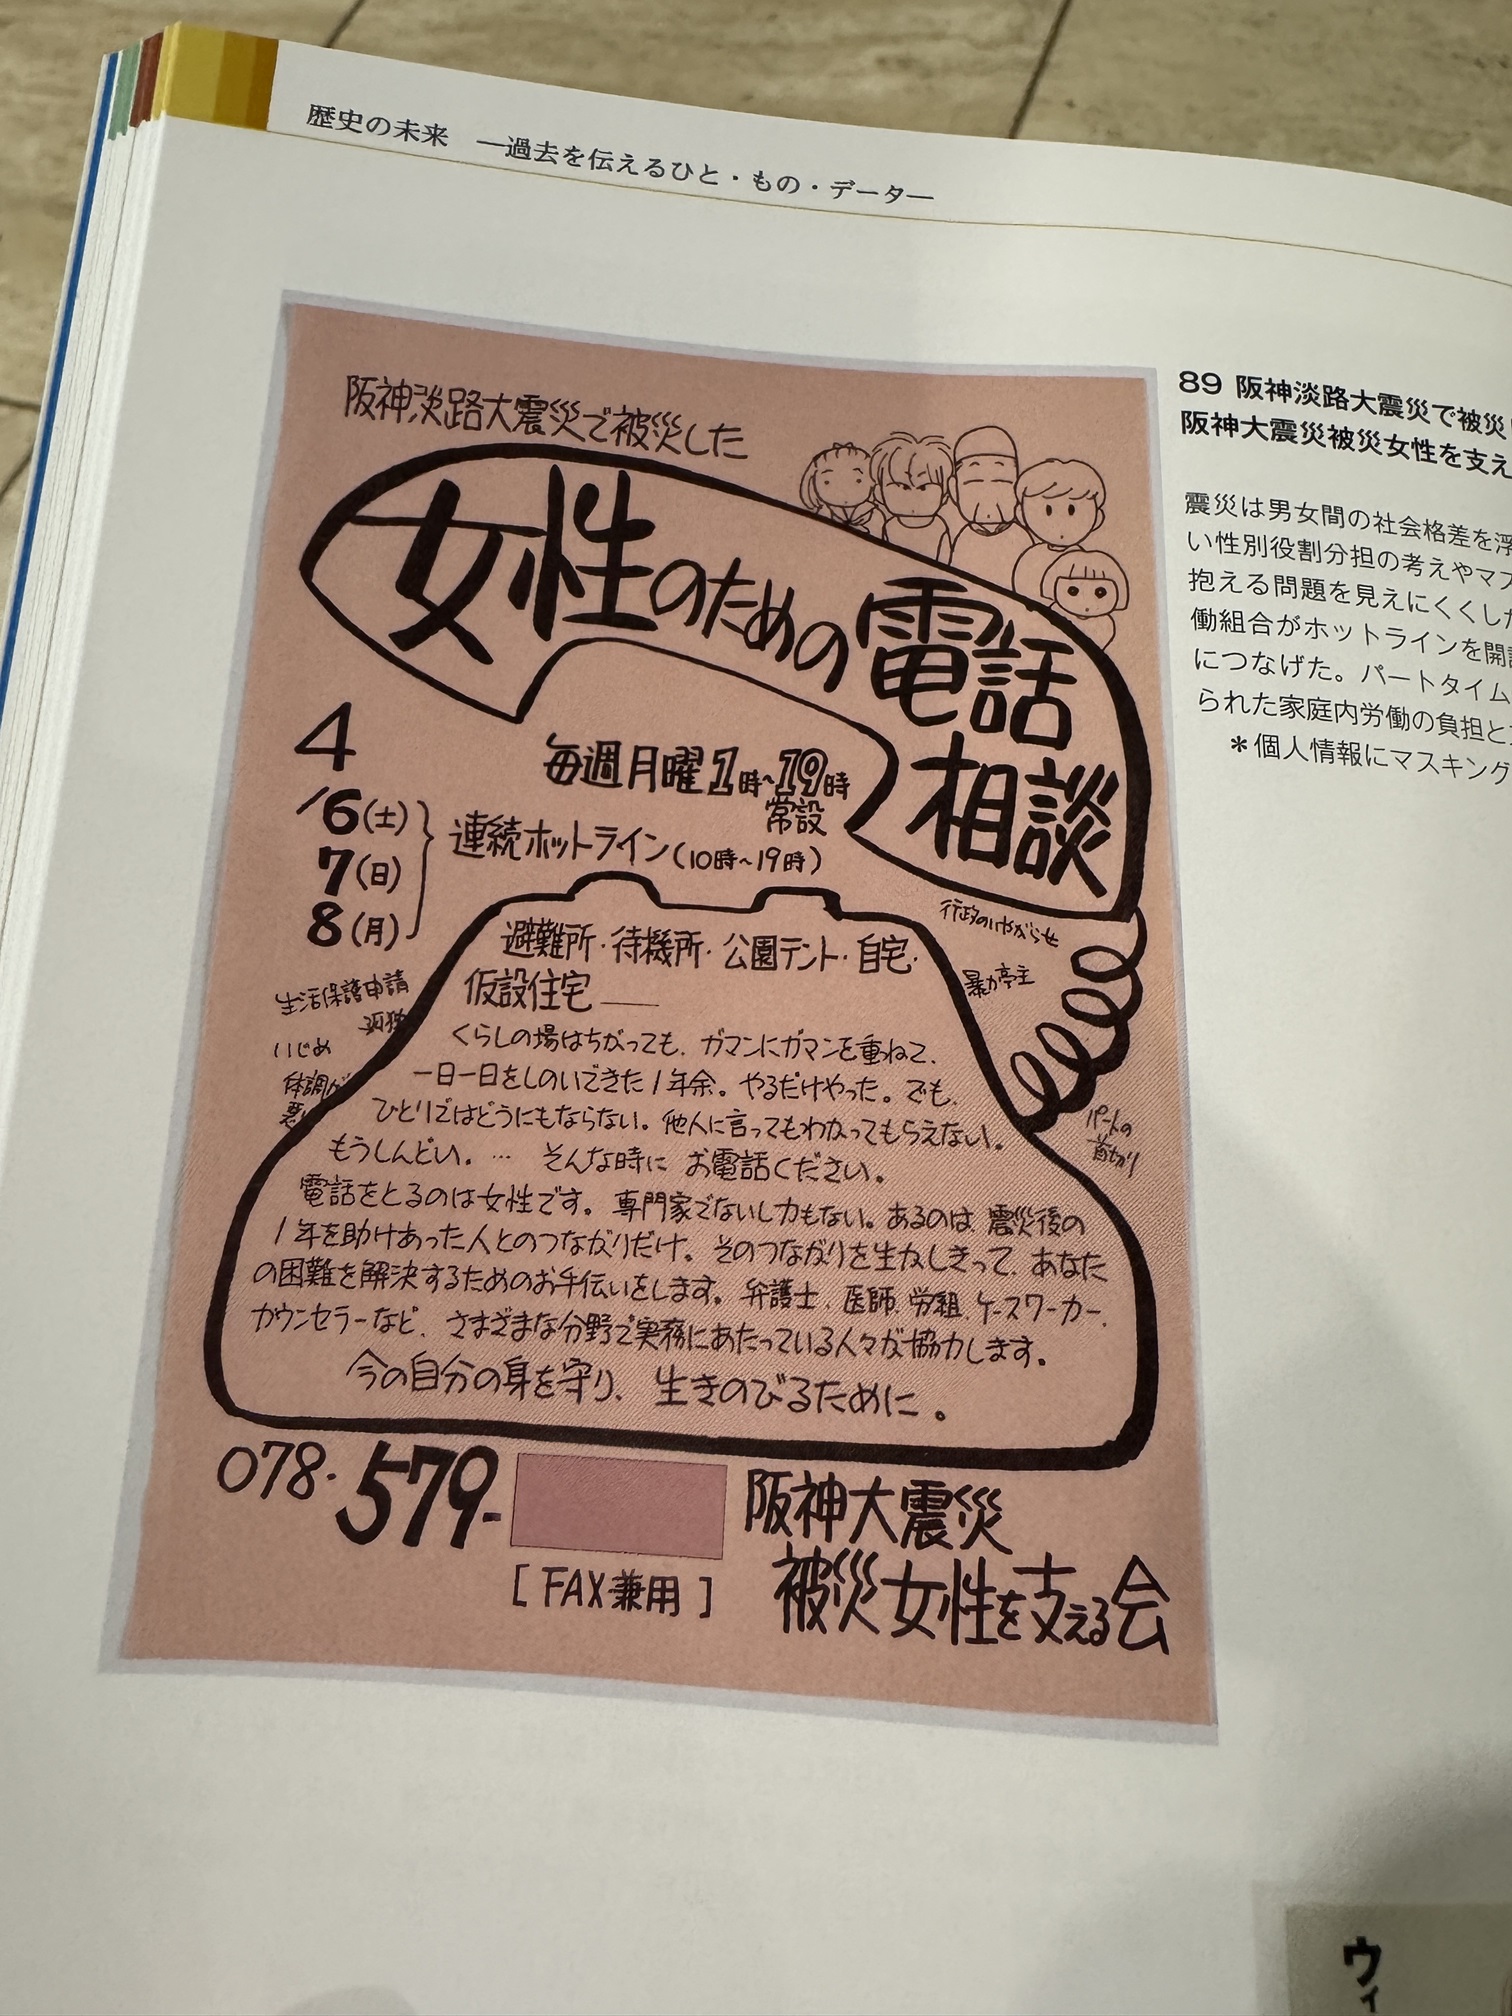 歴史の未来 ―過去を伝えるひと・もの・データ―
阪神淡路大震災で被災した
女性のための電話
相談
4
/6(土)
7(日)
8(月)
毎週月曜1時~19時
常設
連続ホットライン(10時~19時)
行政のいやがらせ
暴力亭主
パートの
首切り
生活保護申請
孤独
いじめ
体調が
悪い
避難所・待機所・公園テント・自宅・
仮設住宅――
くらしの場はちがっても、ガマンにガマンを重ねて、
一日一日をしのいできた1年余。やるだけやった。でも、
ひとりではどうにもならない。他人に言ってもわかってもらえない。
もうしんどい。… そんな時に お電話ください。
電話をとるのは女性です。専門家でないし力もない。あるのは、震災後の
1年を助けあった人とのつながりだけ。そのつながりを生かしきって、あなた
の困難を解決するためのお手伝いをします。弁護士、医師、労組、ケースワーカー、
カウンセラーなど、さまざまな分野で実務にあたっている人々が協力します。
今の自分の身を守り、生きのびるために。
078-579-
[FAX兼用]
阪神大震災
被災女性を支える会
89 阪神淡路大震災で被災
阪神大震災被災女性を支え
震災は男女間の社会格差を浮
い性別役割分担の考えやマス
抱える問題を見えにくくした
働組合がホットラインを開
につなげた。パートタイム
られた家庭内労働の負担と
＊個人情報にマスキング
ウィ